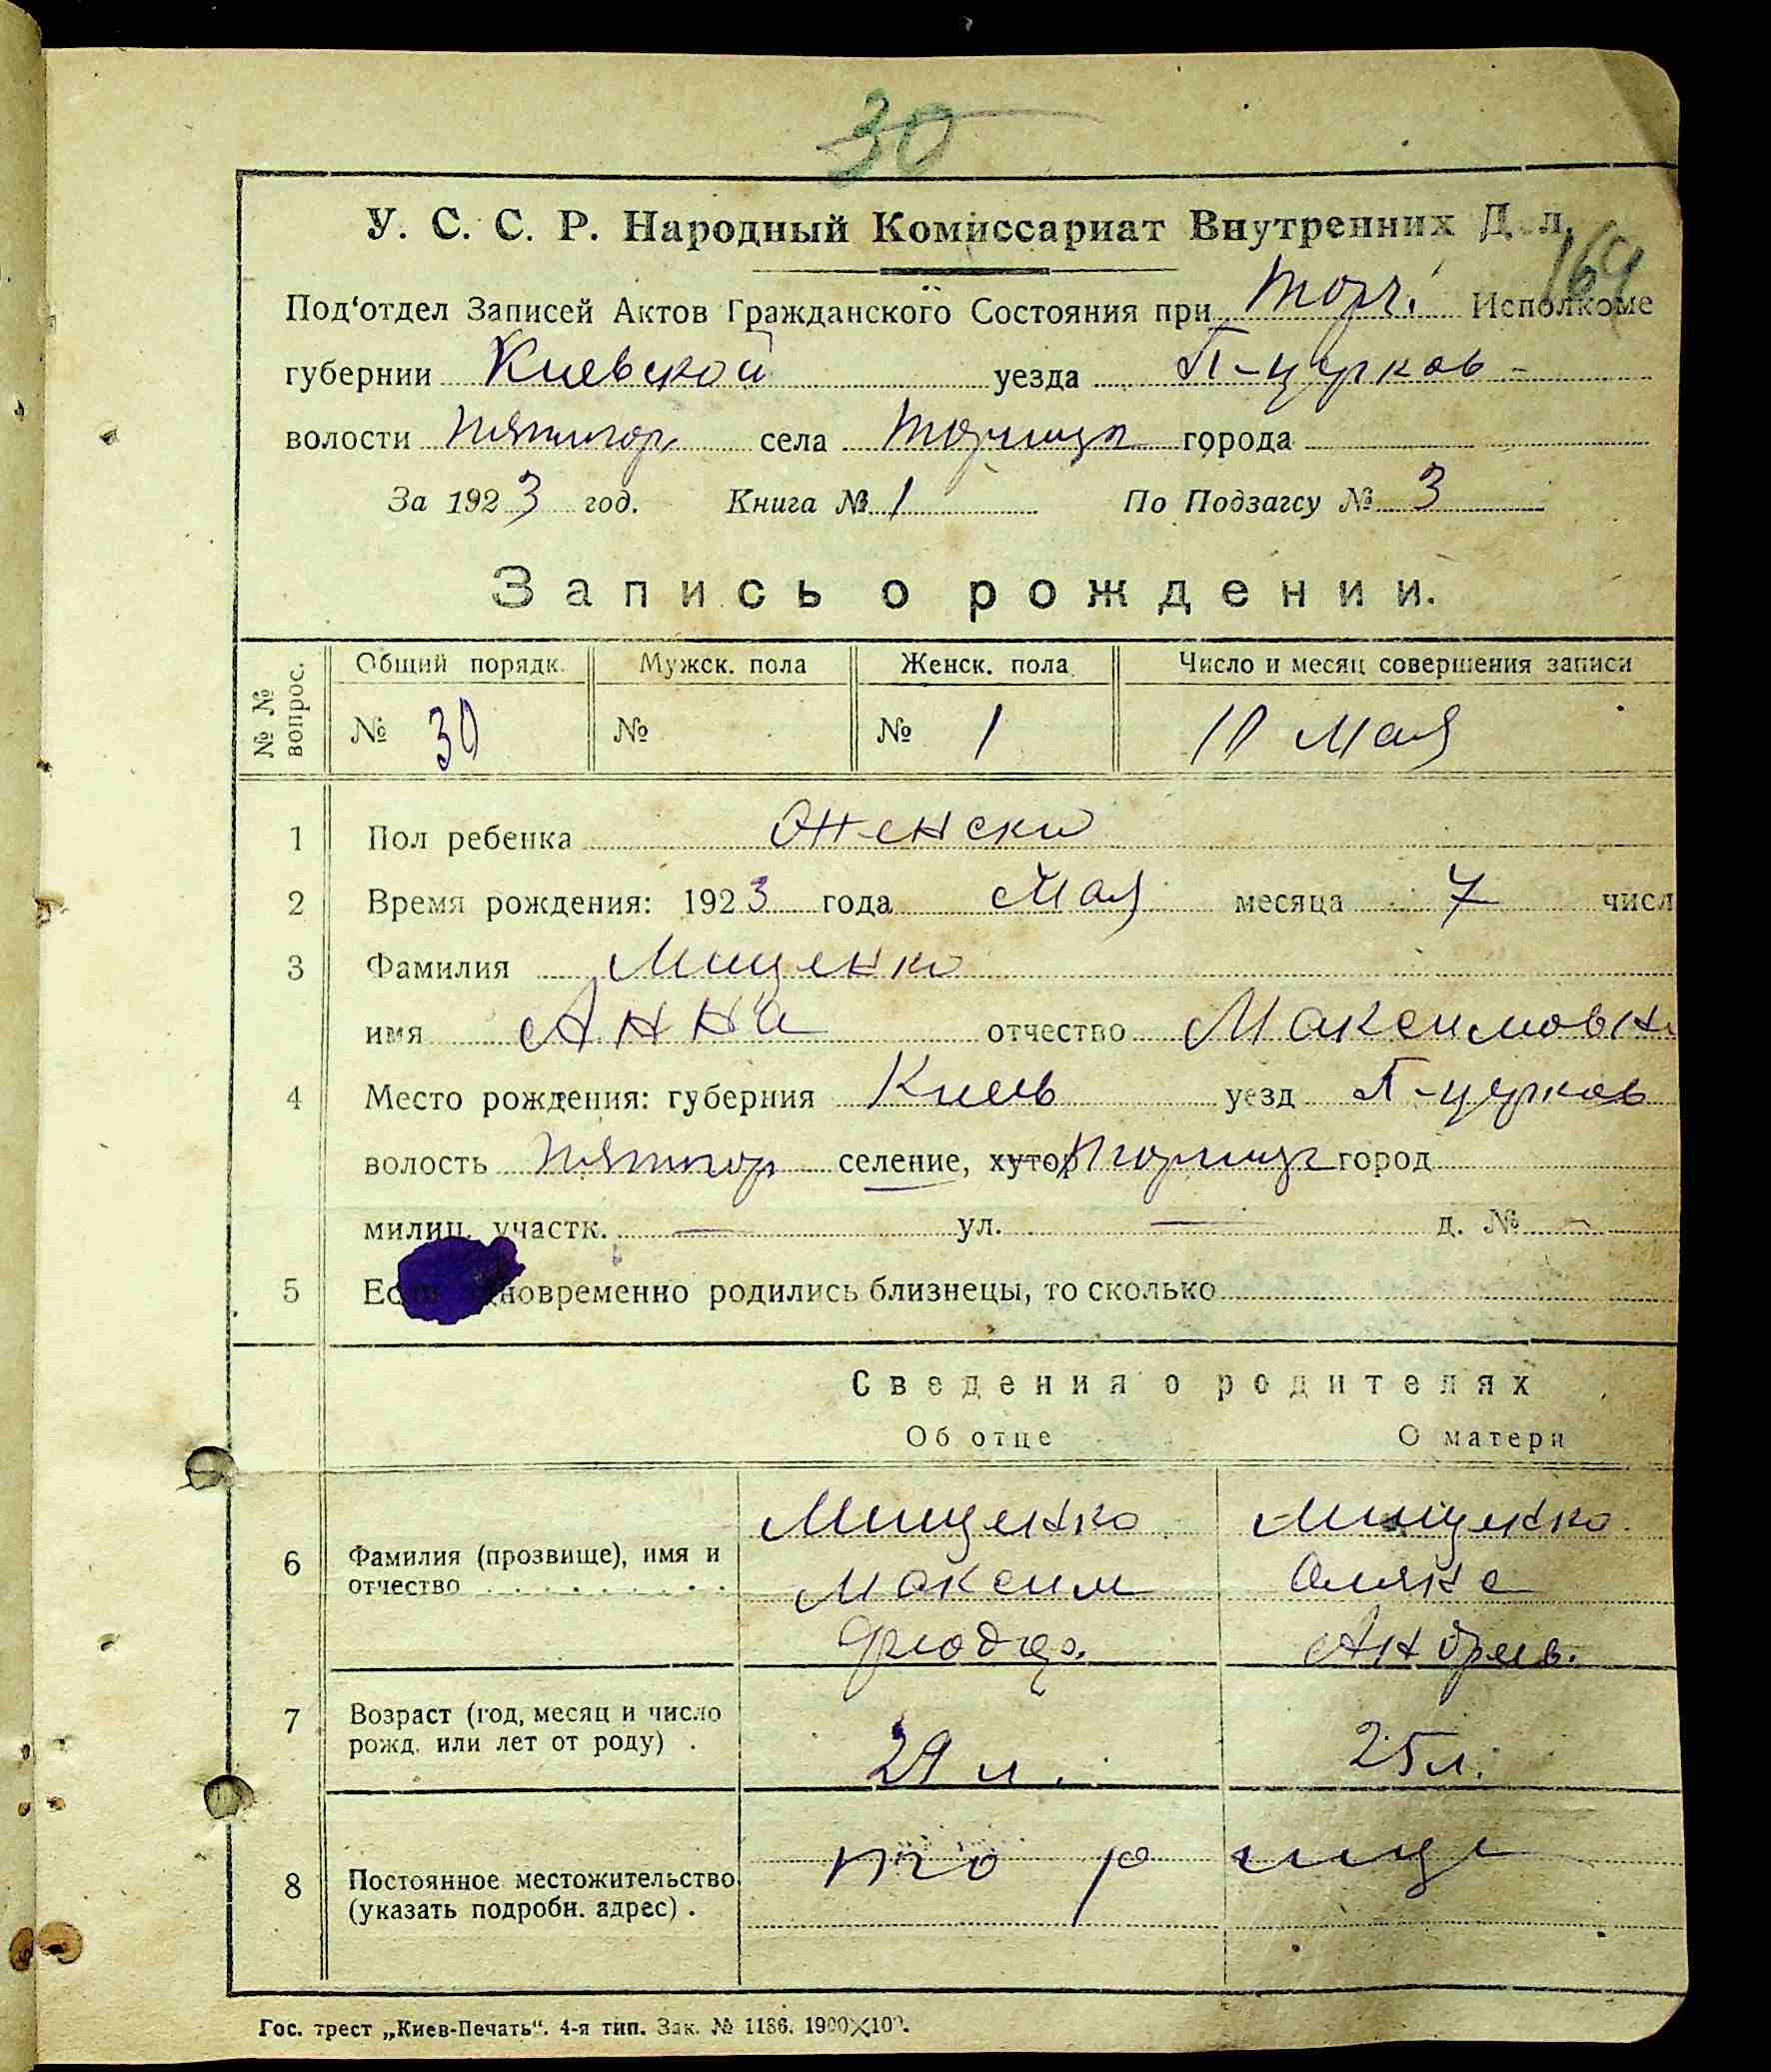 30
У. С. С. Р. Народный Комиссариат Внутренних Д л.
164
Под‘отдел Записей Актов Гражданского Состояния при Торч. Исполкоме
губернии Киевской уезда Б-церков-
волости Пятигор. села Торчица города
За 1923 год. Книга № 1 По Подзагсу № 3
Запись о рождении.
№ № вопрос. Общий порядк. Мужск. пола Женск. пола Число и месяц совершения записи
№ 30 № № 1 10 Мая
1 Пол ребенка Женски
2 Время рождения: 1923 года Мая месяца 7 числ
3 Фамилия Мищенко
имя Анна отчество Максимовн
4 Место рождения: губерния Киев уезд Б-церков
волость Пятигор селение, хутор Торчица город
милиц. участк. — ул. — д. № —
5 Если одновременно родились близнецы, то сколько
Сведения о родителях
Об отце О матери
6 Фамилия (прозвище), имя и отчество Мищенко Мищенко
Максим
Андреев.
7 Возраст (год, месяц и число рожд. или лет от роду) . 29 л. 25 л.
8 Постоянное местожительство (указать подробн. адрес) . Торчица
Гос. трест „Киев-Печать“. 4-я тип. Зак. № 1186. 1900×100.